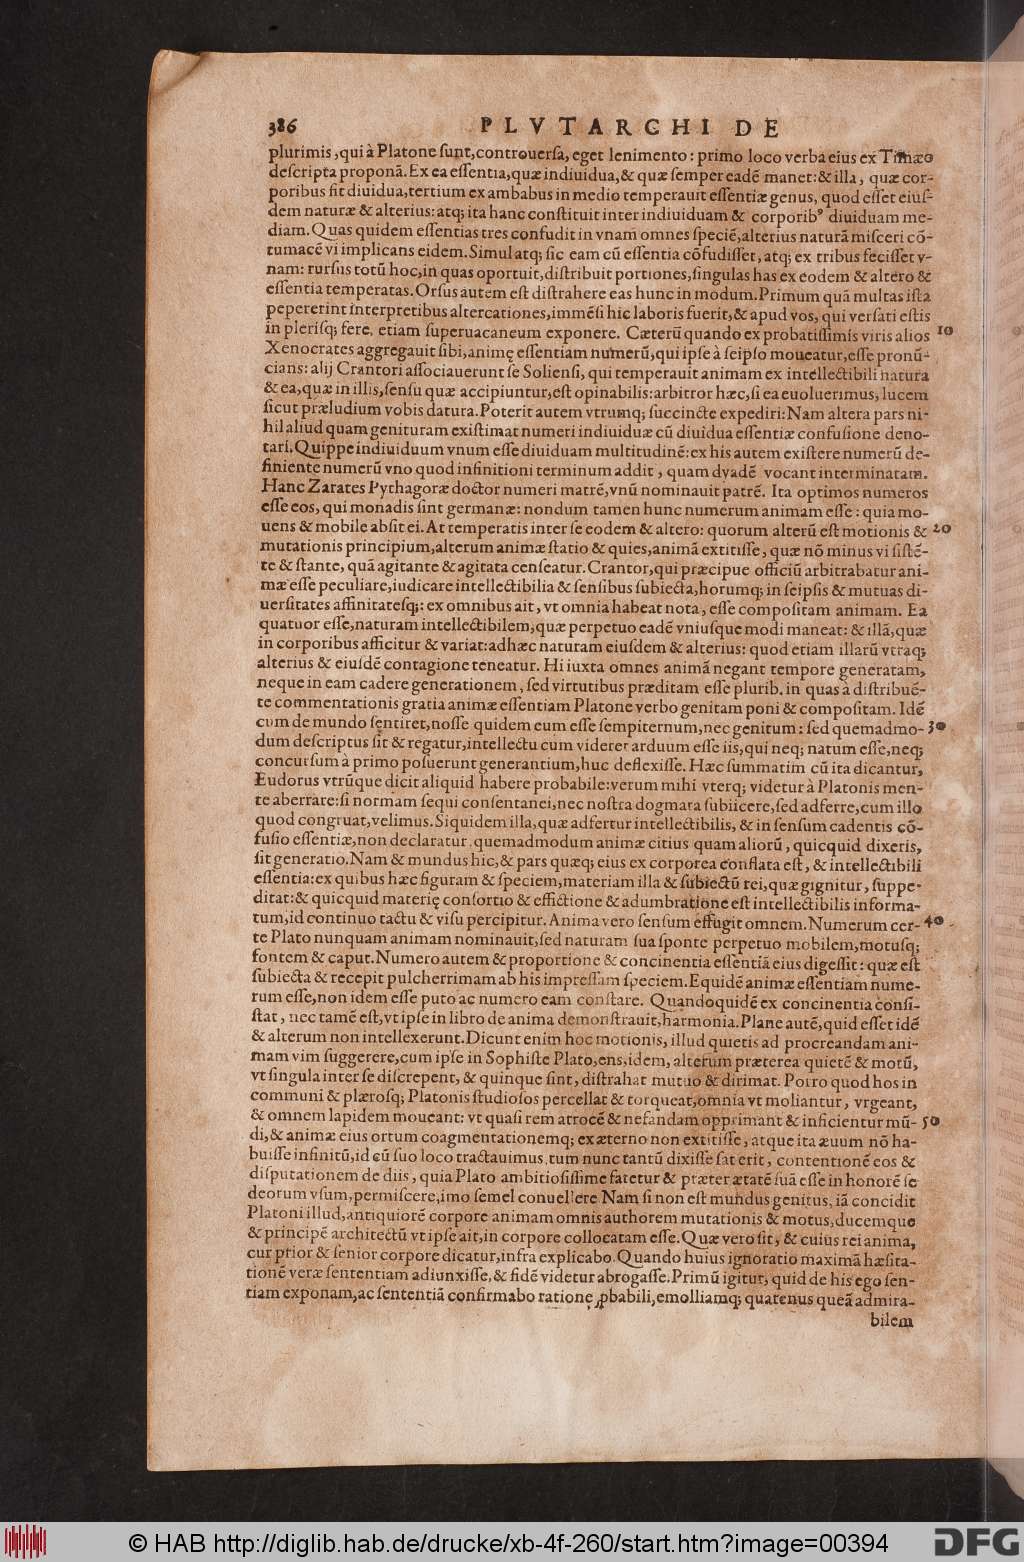 386 PLVTARCHI DE
plurimis, qui à Platone sunt, controuersa, eget lenimento: primo loco verba eius ex Timæo
descripta proponã. Ex ea essentia, quæ indiuidua, & quæ semper eadẽ manet: & illa, quæ cor-
poribus fit diuidua, tertium ex ambabus in medio temperauit essentiæ genus, quod esset eius-
dem naturæ & alterius: atq; ita hanc constituit inter indiuiduam & corporibꝰ diuiduam me-
diam. Quas quidem essentias tres confudit in vnam omnes speciẽ, alterius naturã misceri cõ-
tumacẽ vi implicans eidem. Simul atq; sic eam cũ essentia cõfudisset, atq; ex tribus fecisset v-
nam: rursus totũ hoc, in quas oportuit, distribuit portiones, singulas has ex eodem & altero &
essentia temperatas. Orsus autem est distrahere eas hunc in modum. Primum quã multas ista
pepererint interpretibus altercationes, immẽsi hic laboris fuerit, & apud vos, qui versati estis
in plerisq; fere, etiam superuacaneum exponere. Cæterũ quando ex probatissimis viris alios 10
Xenocrates aggregauit sibi, animę essentiam numerũ, qui ipse à seipso moueatur, esse pronũ-
cians: alij Crantori associauerunt se Soliensi, qui temperauit animam ex intellectibili natura
& ea, quæ in illis, sensu quæ accipiuntur, est opinabilis: arbitror hæc, si ea euoluerimus, lucem
sicut præludium vobis datura. Poterit autem vtrumq; succincte expediri: Nam altera pars ni-
hil aliud quam genituram existimat numeri indiuiduæ cũ diuidua essentiæ confusione deno-
tari. Quippe indiuiduum vnum esse diuiduam multitudinẽ: ex his autem existere numerũ de-
finiente numerũ vno quod infinitioni terminum addit, quam dvadẽ vocant interminatam.
Hanc Zarates Pythagoræ doctor numeri matrẽ, vnũ nominauit patrẽ. Ita optimos numeros
esse eos, qui monadis sint germanæ: nondum tamen hunc numerum animam esse: quia mo-
uens & mobile absit ei. At temperatis inter se eodem & altero: quorum alterũ est motionis & 20
mutationis principium, alterum animæ statio & quies, animã extitisse, quæ nõ minus vi sistẽ-
te & stante, quã agitante & agitata censeatur. Crantor, qui præcipue officiũ arbitrabatur ani-
mæ esse peculiare, iudicare intellectibilia & sensibus subiecta, horumq; in seipsis & mutuas di-
uersitates affinitatesq;: ex omnibus ait, vt omnia habeat nota, esse compositam animam. Ea
quatuor esse, naturam intellectibilem, quæ perpetuo eadẽ vniusque modi maneat: & illã, quæ
in corporibus afficitur & variat: adhæc naturam eiusdem & alterius: quod etiam illarũ vtraq;
alterius & eiusdẽ contagione teneatur. Hi iuxta omnes animã negant tempore generatam,
neque in eam cadere generationem, sed virtutibus præditam esse plurib. in quas à distribuẽ-
te commentationis gratia animæ essentiam Platone verbo genitam poni & compositam. Idẽ
cum de mundo sentiret, nosse quidem eum esse sempiternum, nec genitum: sed quemadmo- 30
dum descriptus sit & regatur, intellectu cum videret arduum esse iis, qui neq; natum esse, neq;
concursum à primo posuerunt generantium, huc deflexisse. Hæc summatim cũ ita dicantur,
Eudorus vtrũque dicit aliquid habere probabile: verum mihi vterq; videtur à Platonis men-
te aberrare: si normam sequi consentanei, nec nostra dogmata subiicere, sed adferre, cum illo
quod congruat, velimus. Siquidem illa, quæ adfertur intellectibilis, & in sensum cadentis cõ-
fusio essentiæ, non declaratur, quemadmodum animæ citius quam aliorũ, quicquid dixeris,
sit generatio. Nam & mundus hic, & pars quæq; eius ex corporea conflata est, & intellectibili
essentia: ex quibus hæc figuram & speciem, materiam illa & subiectũ rei, quæ gignitur, suppe-
ditat: & quicquid materię consortio & effictione & adumbratione est intellectibilis informa-
tum, id continuo tactu & visu percipitur. Anima vero sensum effugit omnem. Numerum cer- 40
te Plato nunquam animam nominauit, sed naturam sua sponte perpetuo mobilem, motusq;
fontem & caput. Numero autem & proportione & concinentia essentiã eius digessit: quæ est
subiecta & recepit pulcherrimam ab his impressam speciem. Equidẽ animæ essentiam nume-
rum esse, non idem esse puto ac numero eam constare. Quandoquidẽ ex concinentia consi-
stat, nec tamẽ est, vt ipse in libro de anima demonstrauit, harmonia. Plane autẽ, quid esset idẽ
& alterum non intellexerunt. Dicunt enim hoc motionis, illud quietis ad procreandam ani-
mam vim suggerere, cum ipse in Sophiste Plato, ens, idem, alterum præterea quietẽ & motũ,
vt singula inter se discrepent, & quinque sint, distrahat mutuo & dirimat. Porro quod hos in
communi & plærosq; Platonis studiosos percellat & torqueat, omnia vt moliantur, vrgeant,
& omnem lapidem moueant: vt quasi rem atrocẽ & nefandam opprimant & inficientur mũ- 50
di, & animæ eius ortum coagmentationemq; ex æterno non extitisse, atque ita æuum nõ ha-
buisse infinitũ, id cũ suo loco tractauimus, tum nunc tantũ dixisse sat erit, contentionẽ eos &
disputationem de diis, quia Plato ambitiosissime fatetur & præter ætatẽ suã esse in honorẽ se
deorum vsum, permiscere, imo semel conuellere. Nam si non est mundus genitus, iã concidit
Platoni illud, antiquiorẽ corpore animam omnis authorem mutationis & motus, ducemque
& principẽ architectũ vt ipse ait, in corpore collocatam esse. Quæ vero sit, & cuius rei anima,
cur prior & senior corpore dicatur, infra explicabo. Quando huius ignoratio maximã hæsita-
tionẽ veræ sententiam adiunxisse, & fidẽ videtur abrogasse. Primũ igitur, quid de his ego sen-
tiam exponam, ac sententiã confirmabo ratione ꝓbabili, emolliamq; quatenus queã admira-
bilem
© HAB http://diglib.hab.de/drucke/xb-4f-260/start.htm?image=00394 DFG